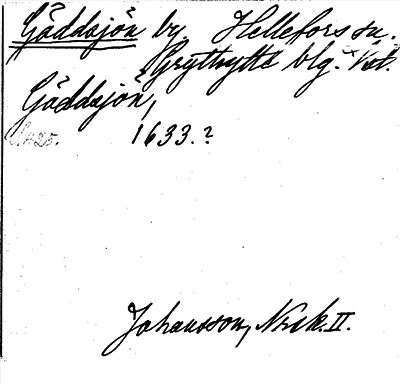 Gäddsjön by. Hellefors sn.
Grythytte blg. Vstm.
Gäddsjön,
1633.?
S. 425.
Johansson, Nrik. II.